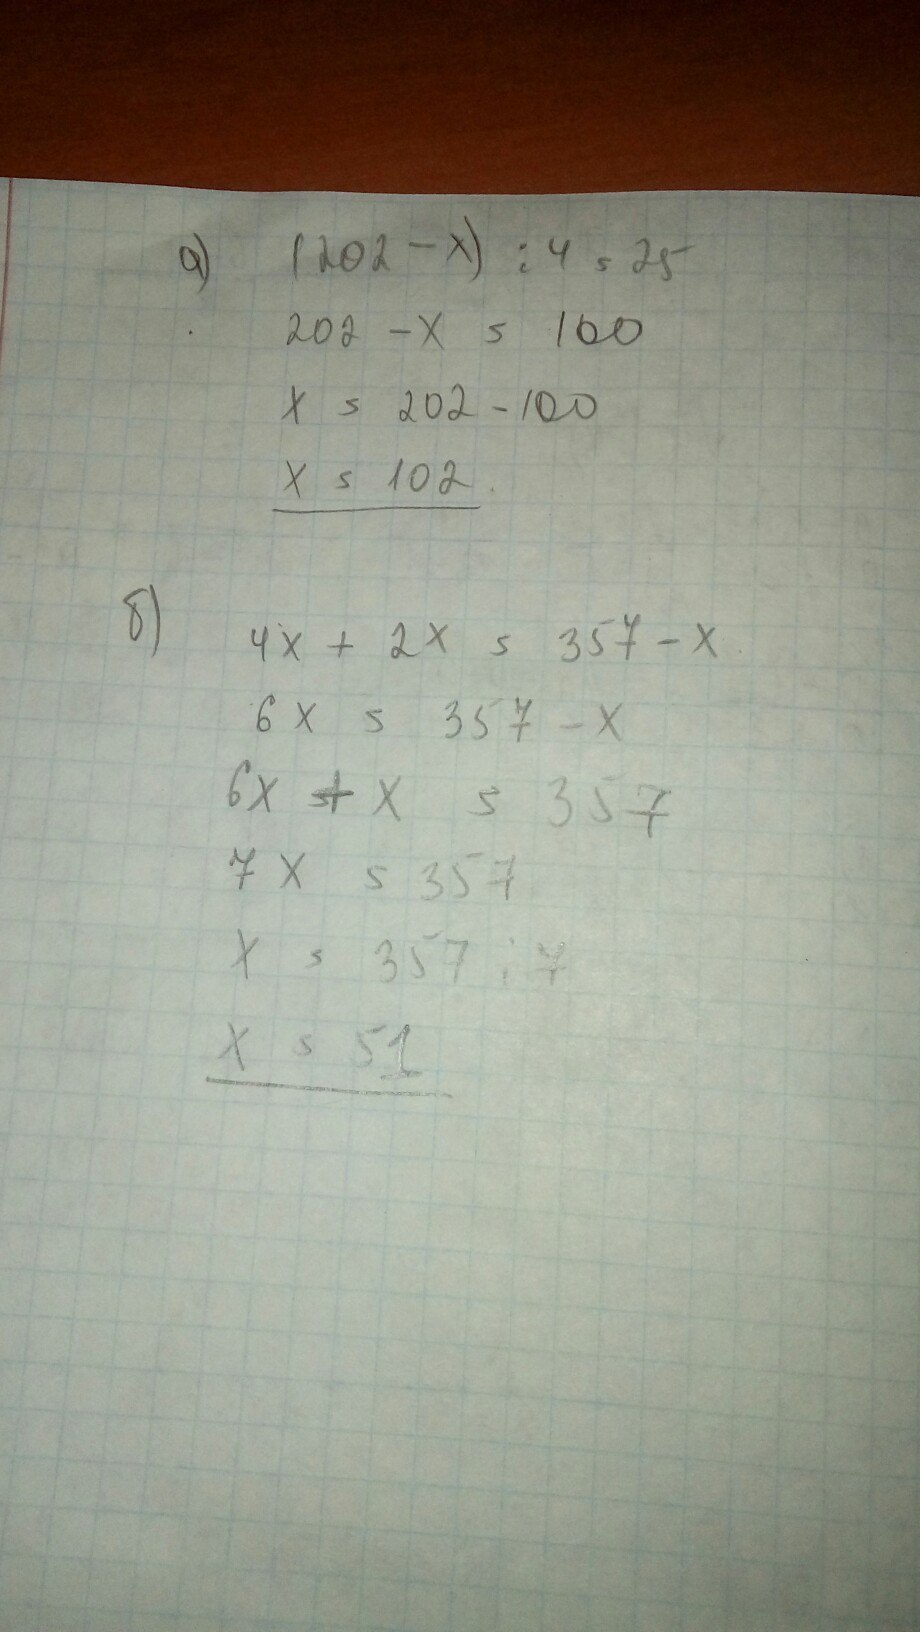 а) (202 - x) : 4 = 25
202 - x = 100
x = 202 - 100
x = 102.
б) 4x + 2x = 357 - x
6x = 357 - x
6x + x = 357
7x = 357
x = 357 : 7
x = 51